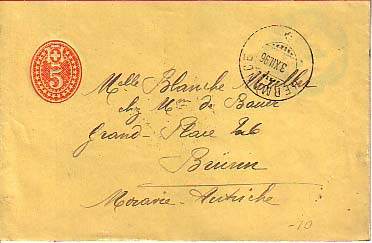 5
3.XII.96
Mlle Blanche
chez Mme de Bauer
Grand-Place
Brünn
Moravie-Autriche
-10